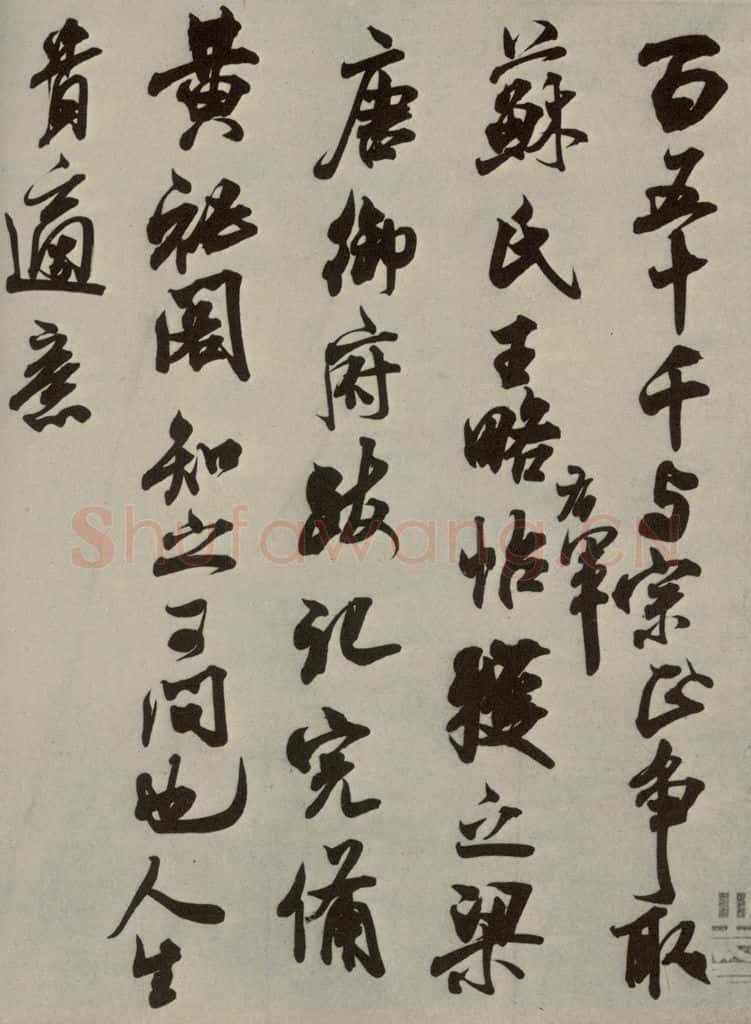 百五十千与宗正争取
右軍
蘇氏王略帖獲之梁
唐御府跋記完備
黃祕閣知之可問也人生
貴適意
Shufawang.CN